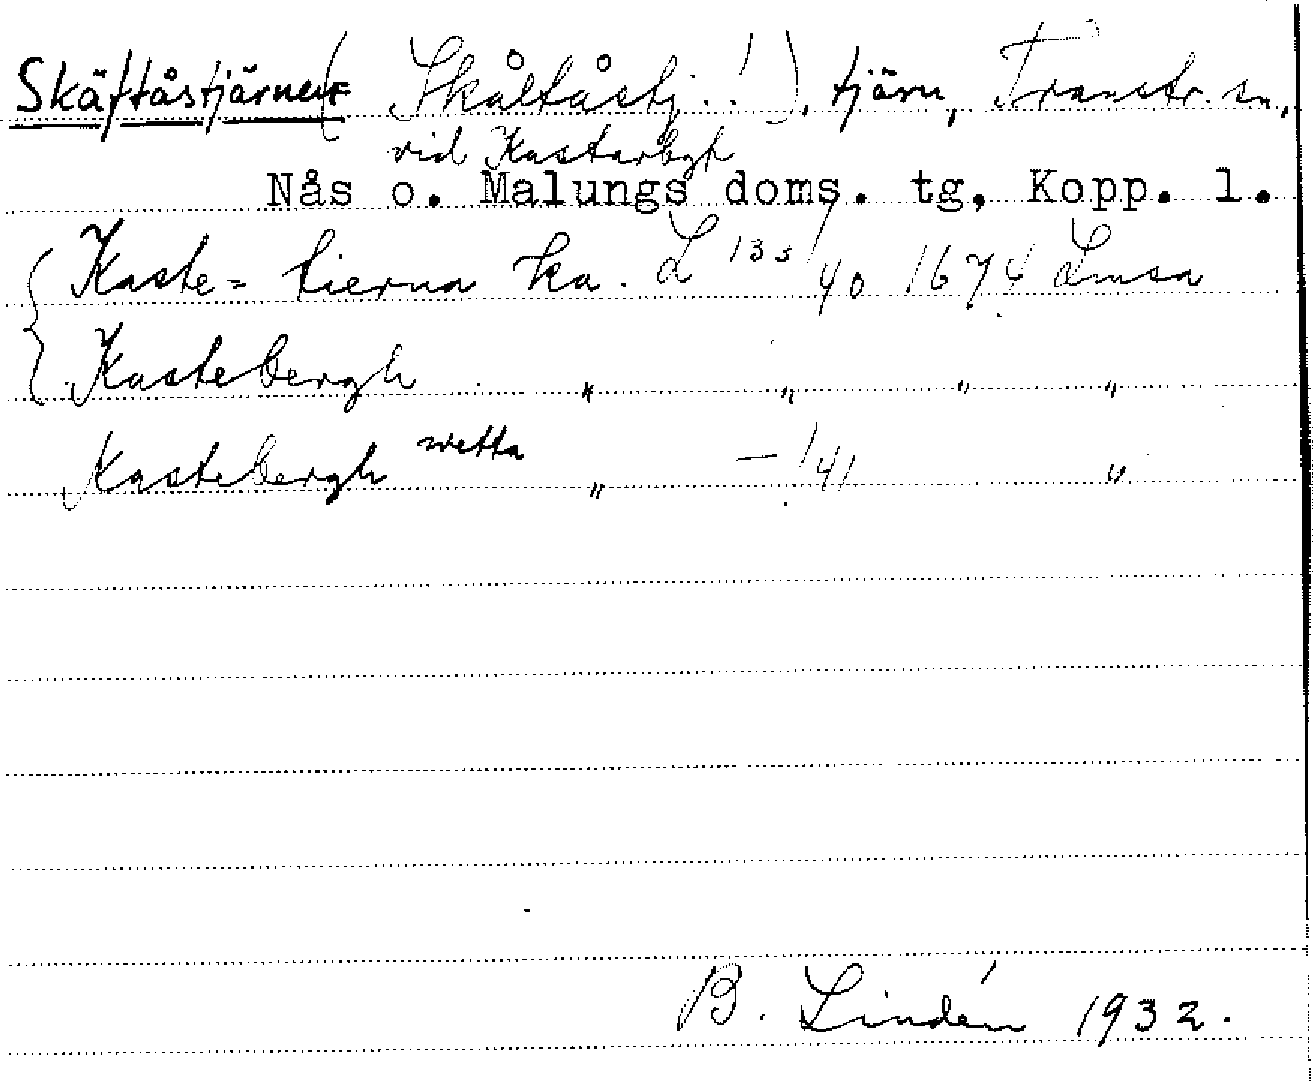 Skäftåstjärnen (Skåltåstj.!), tjärn, Transtr. sn,
vid Kastarbgh
Nås o. Malungs doms. tg, Kopp. l.
Kaste= tierna ka. L 133/40 1674 Lmsa
Kastebergh " " " "
Kastebergh wetta " —/41 "
B. Lindén 1932.